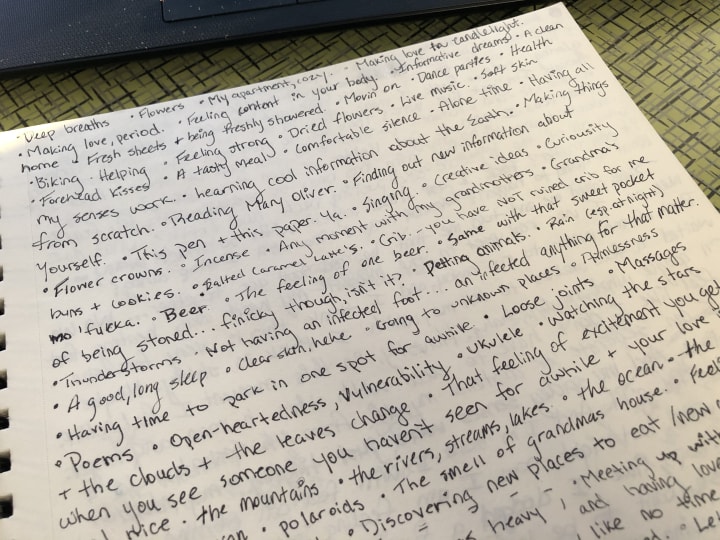 • Deep breaths • Flowers • My apartment, cozy. • Making love in candlelight.
• Making love, period. • Feeling content in your body. • Informative dreams • A clean
home • Fresh sheets + being freshly showered • Movin' on • Dance parties • Health
• Biking • Helping • Feeling strong • Dried flowers • Live music • Soft skin
• Forehead kisses • A tasty meal • Comfortable silence • Alone time • Having all
my senses work. • Learning cool information about the Earth. • Making things
from scratch. • Reading Mary Oliver. • Finding out new information about
yourself. • This pen + this paper. Ya. • Singing. • Creative ideas • Curiousity
• Flower crowns. • Incense • Any moment with my grandmothers • Grandma's
buns + cookies. • Salted Caramel Latte's. • Crib... you have NOT ruined crib for me
mo'fukka. • Beer • The feeling of one beer. • Same with that sweet pocket
of being stoned... finicky though, isn't it? • Petting animals. • Rain (esp. at night)
• Thunderstorms • Not having an infected foot... an infected anything for that matter.
• A good, long sleep • Clear skin, hehe • Going to unknown places • Aimlessness
• Having time to park in one spot for awhile • Loose joints • Massages
• Poems • Open-heartedness, Vulnerability • Ukulele • Watching the stars
+ the clouds + the leaves change • That feeling of excitement you get
when you see someone you haven't seen for awhile + your love
nice • the mountains • the rivers, streams, lakes. • the ocean • the
• polaroids • The smell of grandmas house. • Feel
• Discovering new places to eat / new
heavy, • Meeting up with
and having love
like no time